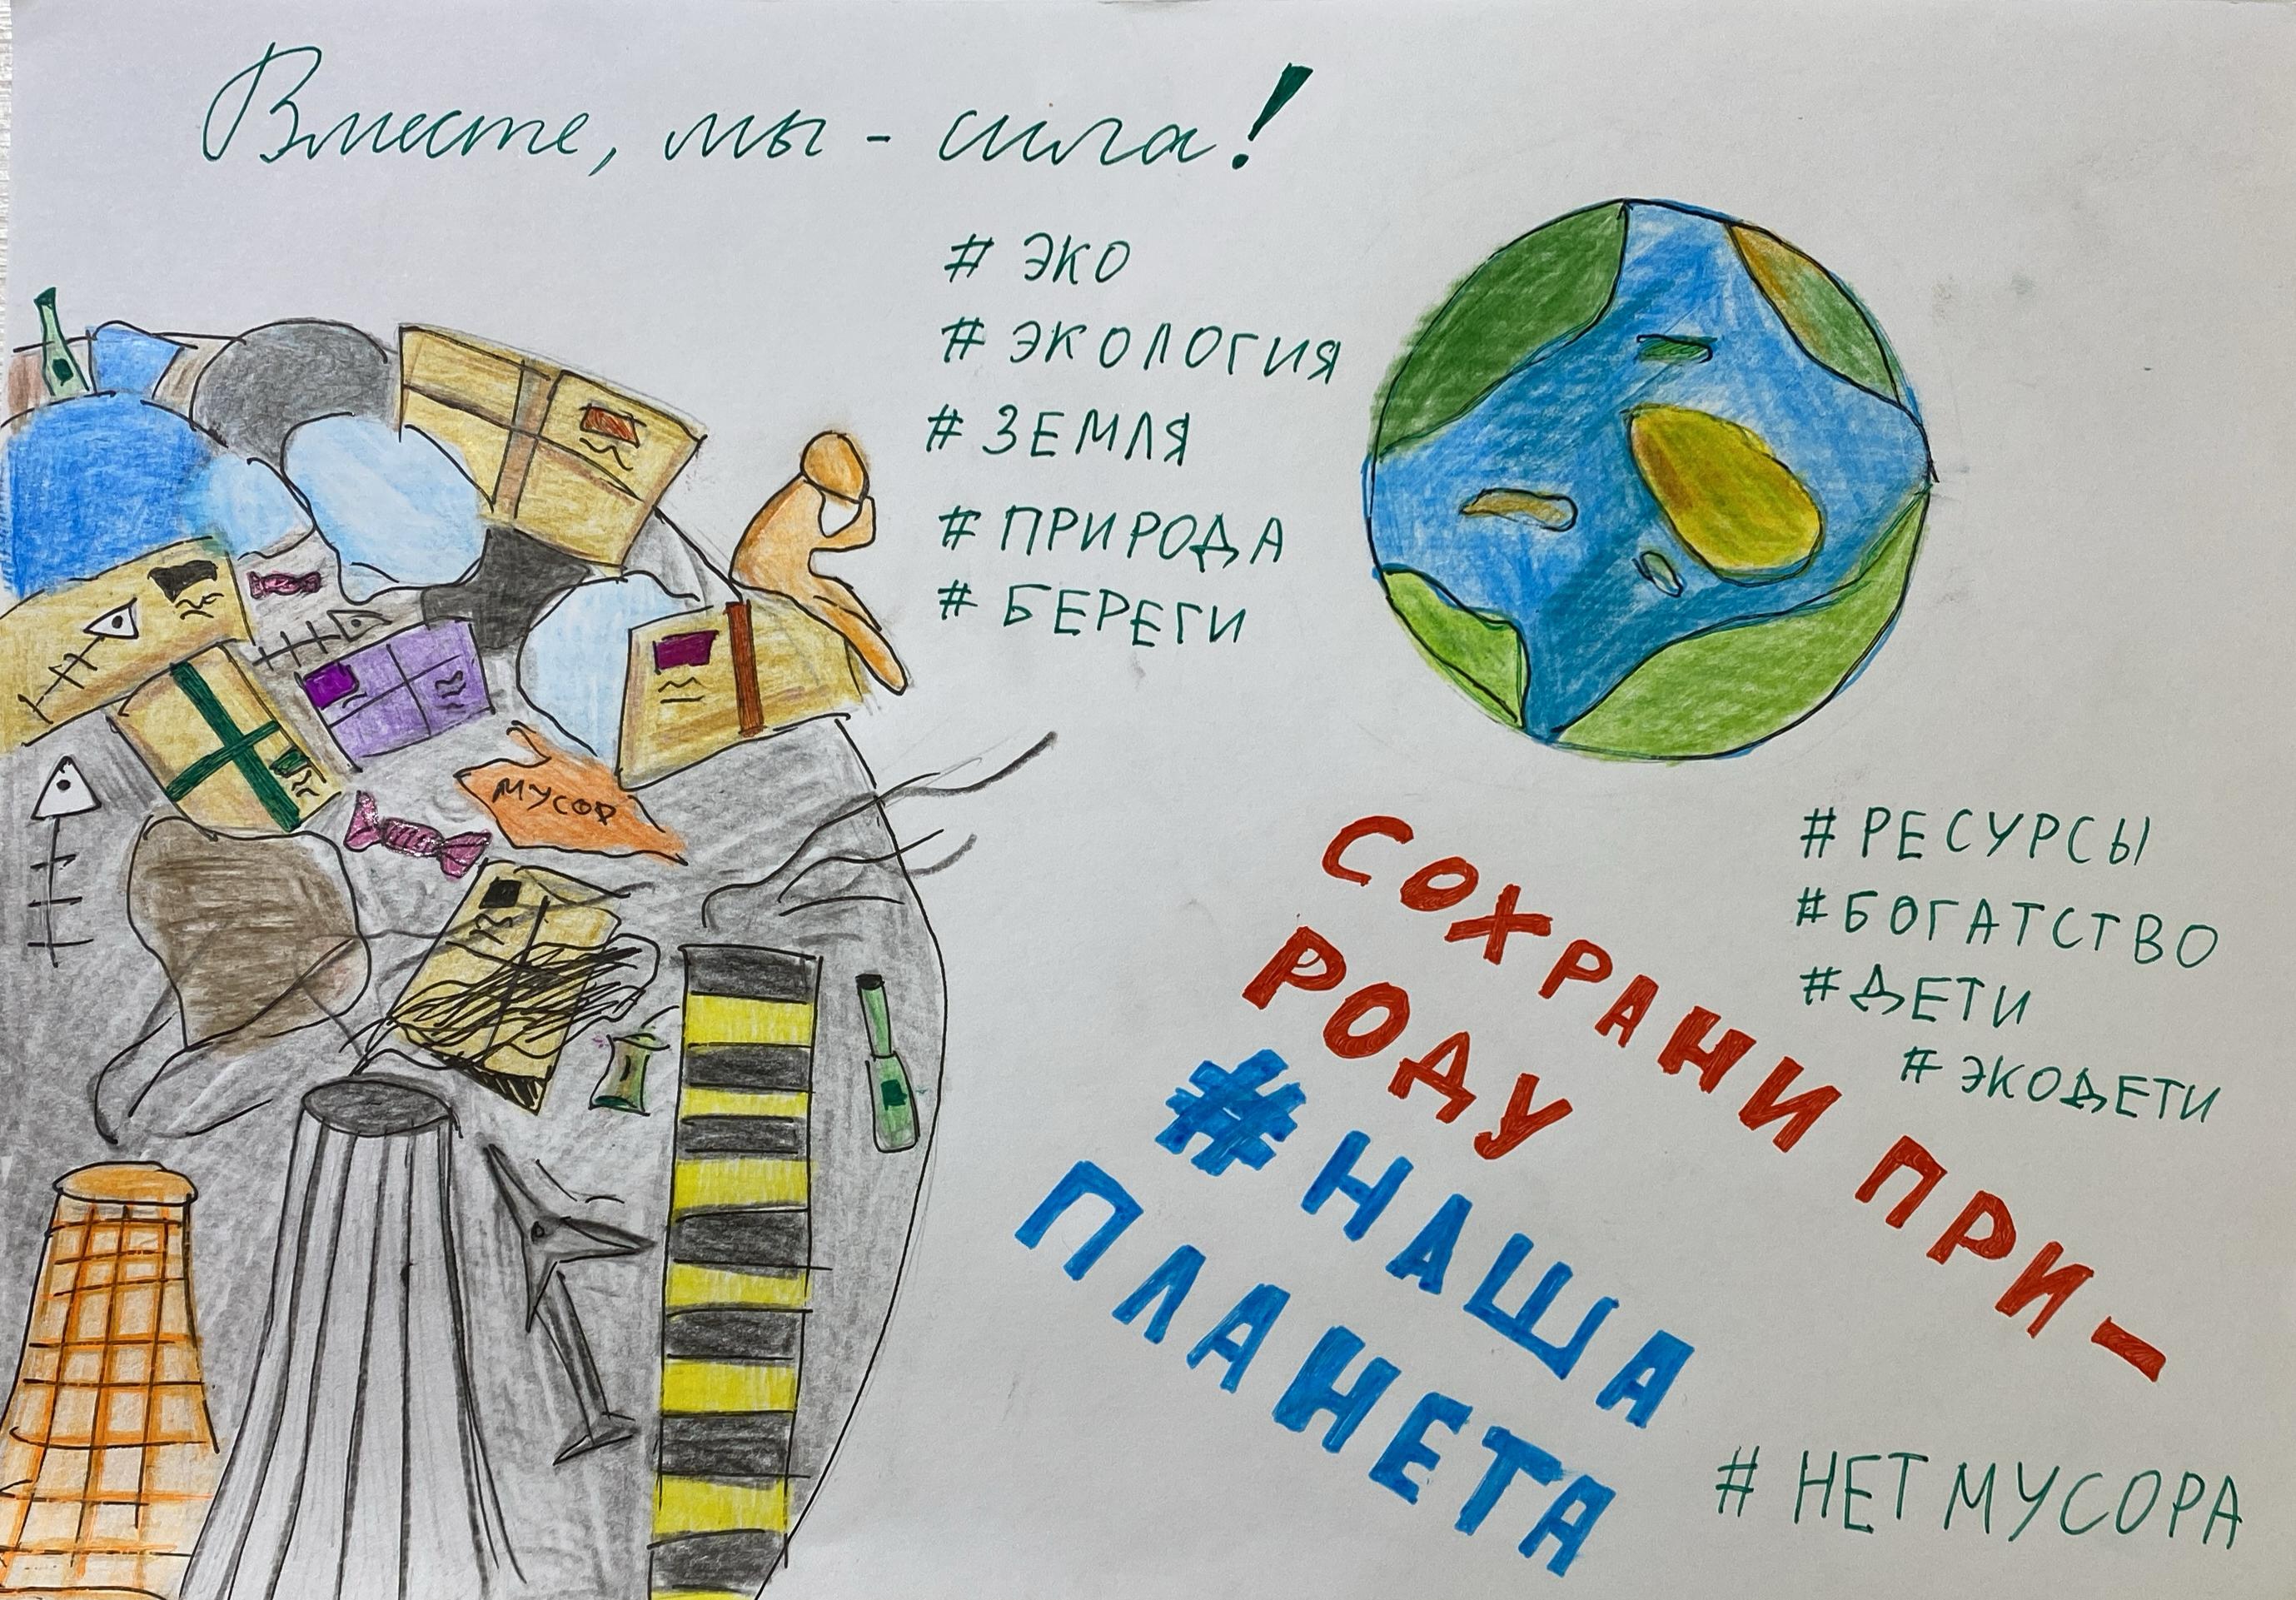 Вместе, мы - сила!
# ЭКО
# ЭКОЛОГИЯ
# ЗЕМЛЯ
# ПРИРОДА
# БЕРЕГИ
МУСОР
# РЕСУРСЫ
# БОГАТСТВО
# ДЕТИ
# ЭКОДЕТИ
СОХРАНИ ПРИ-
РОДУ
# НАША
ПЛАНЕТА
# НЕТ МУСОРА